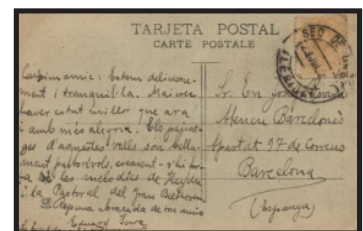 TARJETA POSTAL
CARTE POSTALE
SEO DE
amic: Estem deliciosa-
ment i tranquil·la. Mai crec
haver estat millor que ara
i amb més alegria. Els paisat-
ges d'aquestes valls son bella-
ment pastorívols, escaient-s'hi
les melodies de Haydn
i la Pastoral del gran Beethoven
abraçada de ton amic
Eduard
Sr. En
Ateneu Barcelonès
Apartat 97 de Correus
Barcelona
(Espanya)